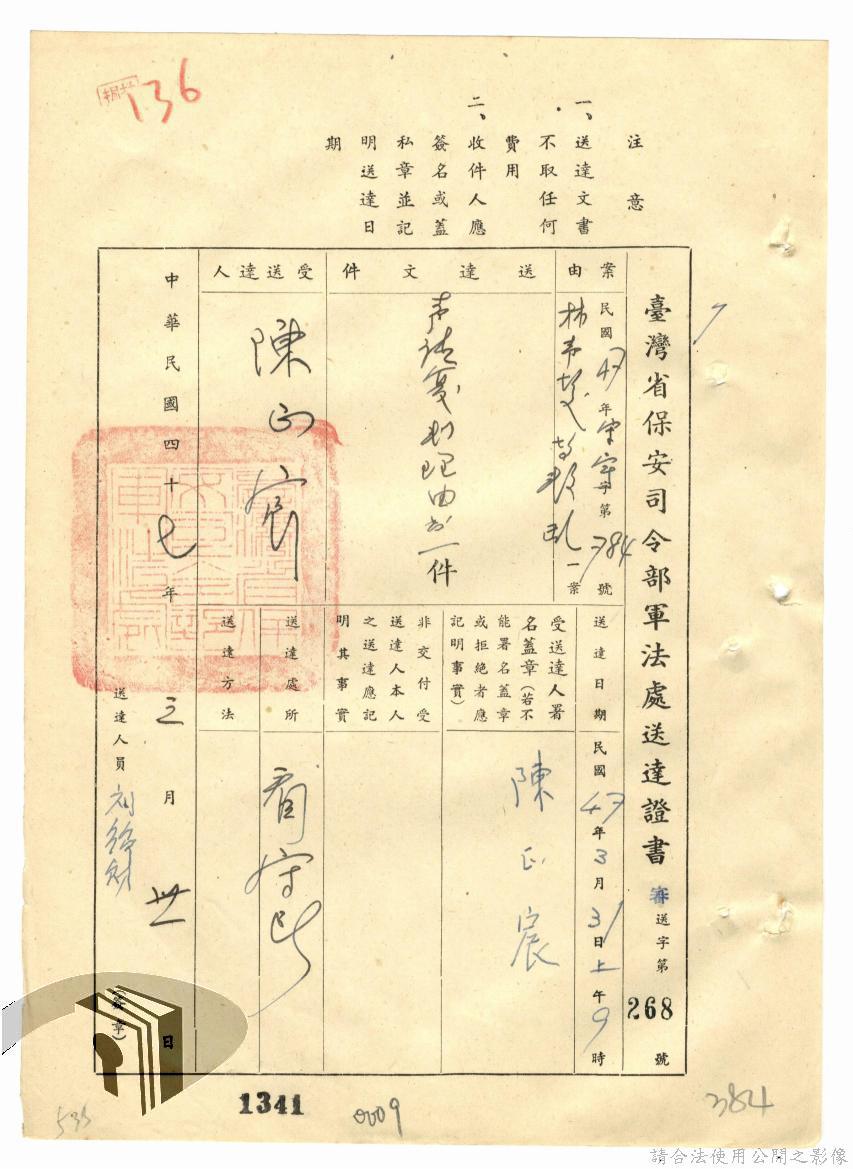 136
注意
一、送達文書
不取任何
費用
二、收件人應
簽名或蓋
私章並記
明送達日
期
臺灣省保安司令部軍法處送達證書
審送字第268號
案由
民國47年 審字第 號
一案
送達文件
声請覆判理由書一件
受送達人
陳正宸
送達日期
民國47年3月31日上午9時
受送達人署
名蓋章(若不
能署名蓋章
或拒絕者應
記明事實)
陳正宸
非交付受
送達人本人
之送達應記
明其事實
送達處所
看守所
送達方法
中華民國四十七年三月卅一日
送達人員
(簽章)
1341
0009
384
535
請合法使用公開之影像